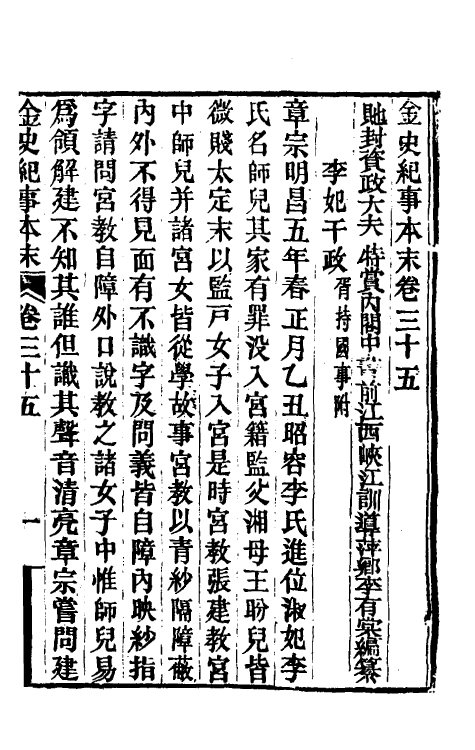 金史紀事本末卷三十五
貤封資政大夫特賞內閣中書前江西峽江訓導萍鄉李有棠編纂
李妃干政胥持國事附
章宗明昌五年春正月乙丑昭容李氏進位淑妃李
氏名師兒其家有罪没入宮籍監父湘母王盼兒皆
微賤太定末以監戸女子入宮是時宮教張建教宮
中師兒并諸宮女皆從學故事宮教以青紗隔障蔽
內外不得見面有不識字及問義皆自障內映紗指
字請問宮教自障外口說教之諸女子中惟師兒易
爲領解建不知其誰但識其聲音清亮章宗嘗問建
金史紀事本末 卷三十五 一